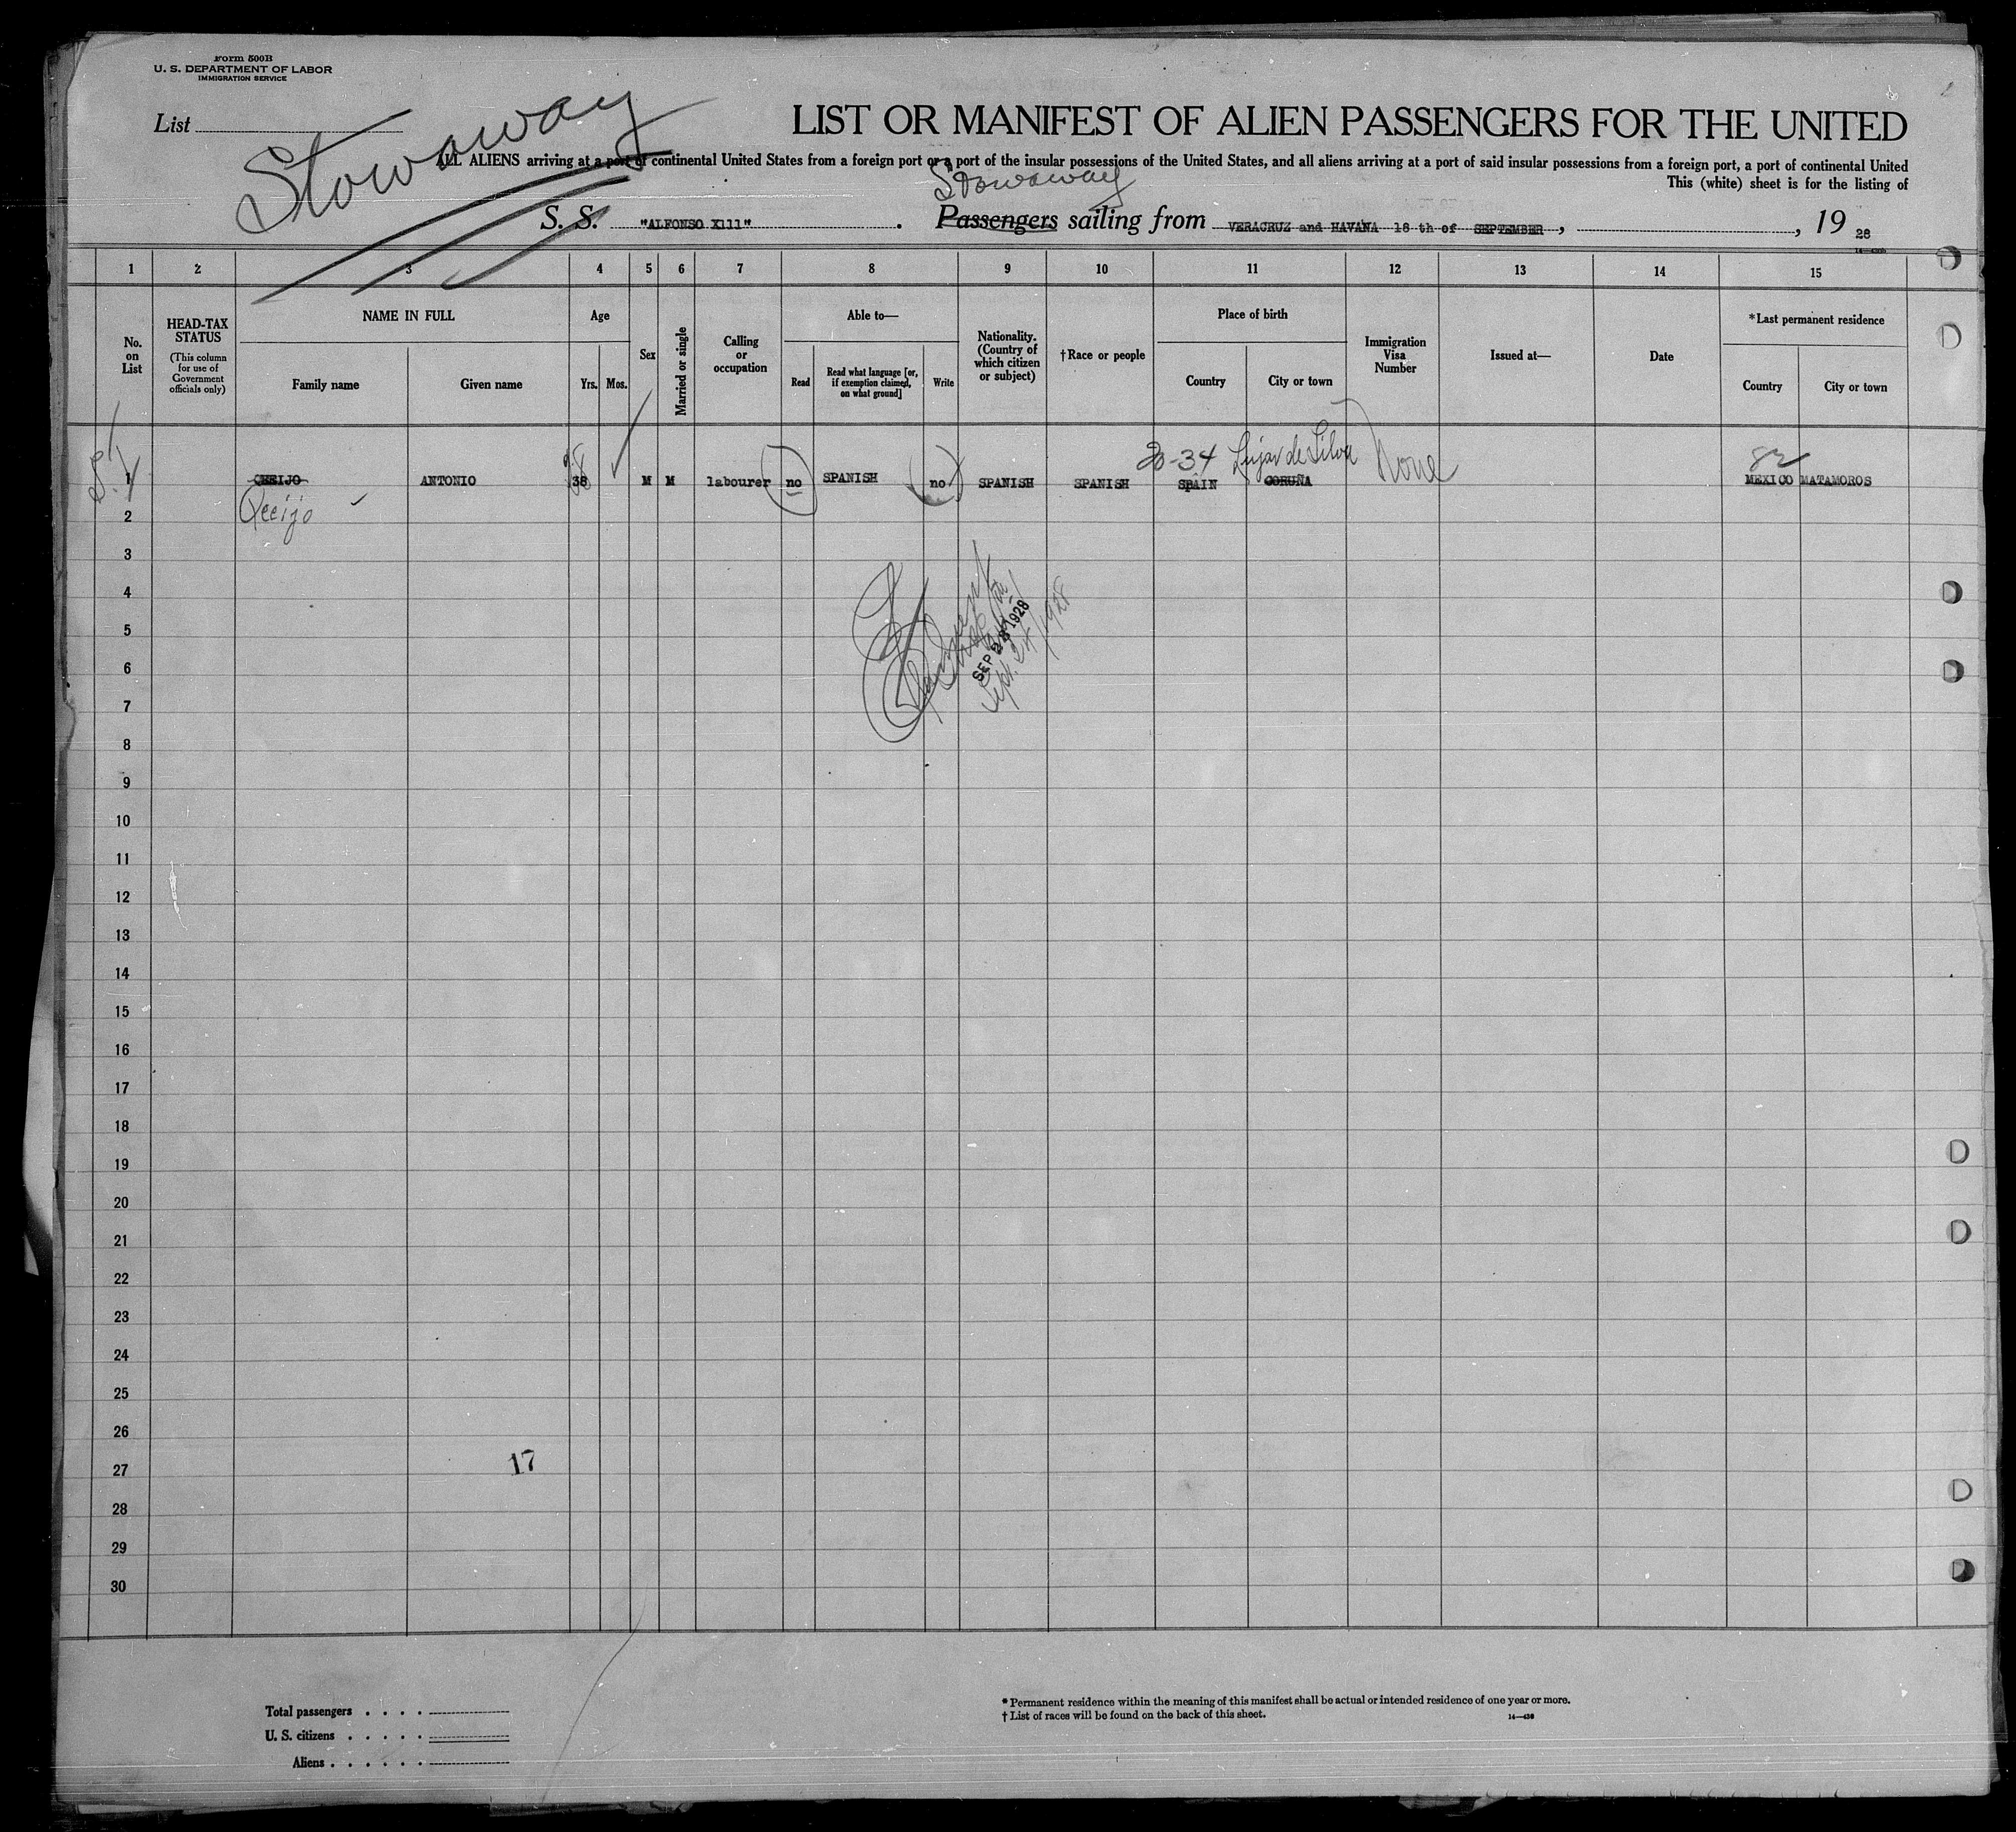 Form 500B
U. S. DEPARTMENT OF LABOR
IMMIGRATION SERVICE
List
Stowaway
LIST OR MANIFEST OF ALIEN PASSENGERS FOR THE UNITED
ALL ALIENS arriving at a port of continental United States from a foreign port or a port of the insular possessions of the United States, and all aliens arriving at a port of said insular possessions from a foreign port, a port of continental United
This (white) sheet is for the listing of
Stowaway
S. S. "ALFONSO X111" . Passengers sailing from VERACRUZ and HAVANA 18 th of SEPTEMBER , , 19 28
1 2 3 4 5 6 7 8 9 10 11 12 13 14 15
No. on List
HEAD-TAX STATUS
(This column for use of Government officials only)
NAME IN FULL
Family name
Given name
Age
Yrs.
Mos.
Sex
Married or single
Calling or occupation
Able to—
Read
Read what language [or, if exemption claimed, on what ground]
Write
Nationality. (Country of which citizen or subject)
†Race or people
Place of birth
Country
City or town
Immigration Visa Number
Issued at—
Date
*Last permanent residence
Country
City or town
1 ANTONIO 38 M M labourer no SPANISH no SPANISH SPANISH SPAIN CORUÑA None MEXICO MATAMOROS
82
2
3
4
5
6
7
8
9
10
11
12
13
14
15
16
17
18
19
20
21
22
23
24
25
26
27
28
29
30
Sept. 24/1928
17
Total passengers . . . .
U. S. citizens . . . . .
Aliens . . . . . .
* Permanent residence within the meaning of this manifest shall be actual or intended residence of one year or more.
† List of races will be found on the back of this sheet.